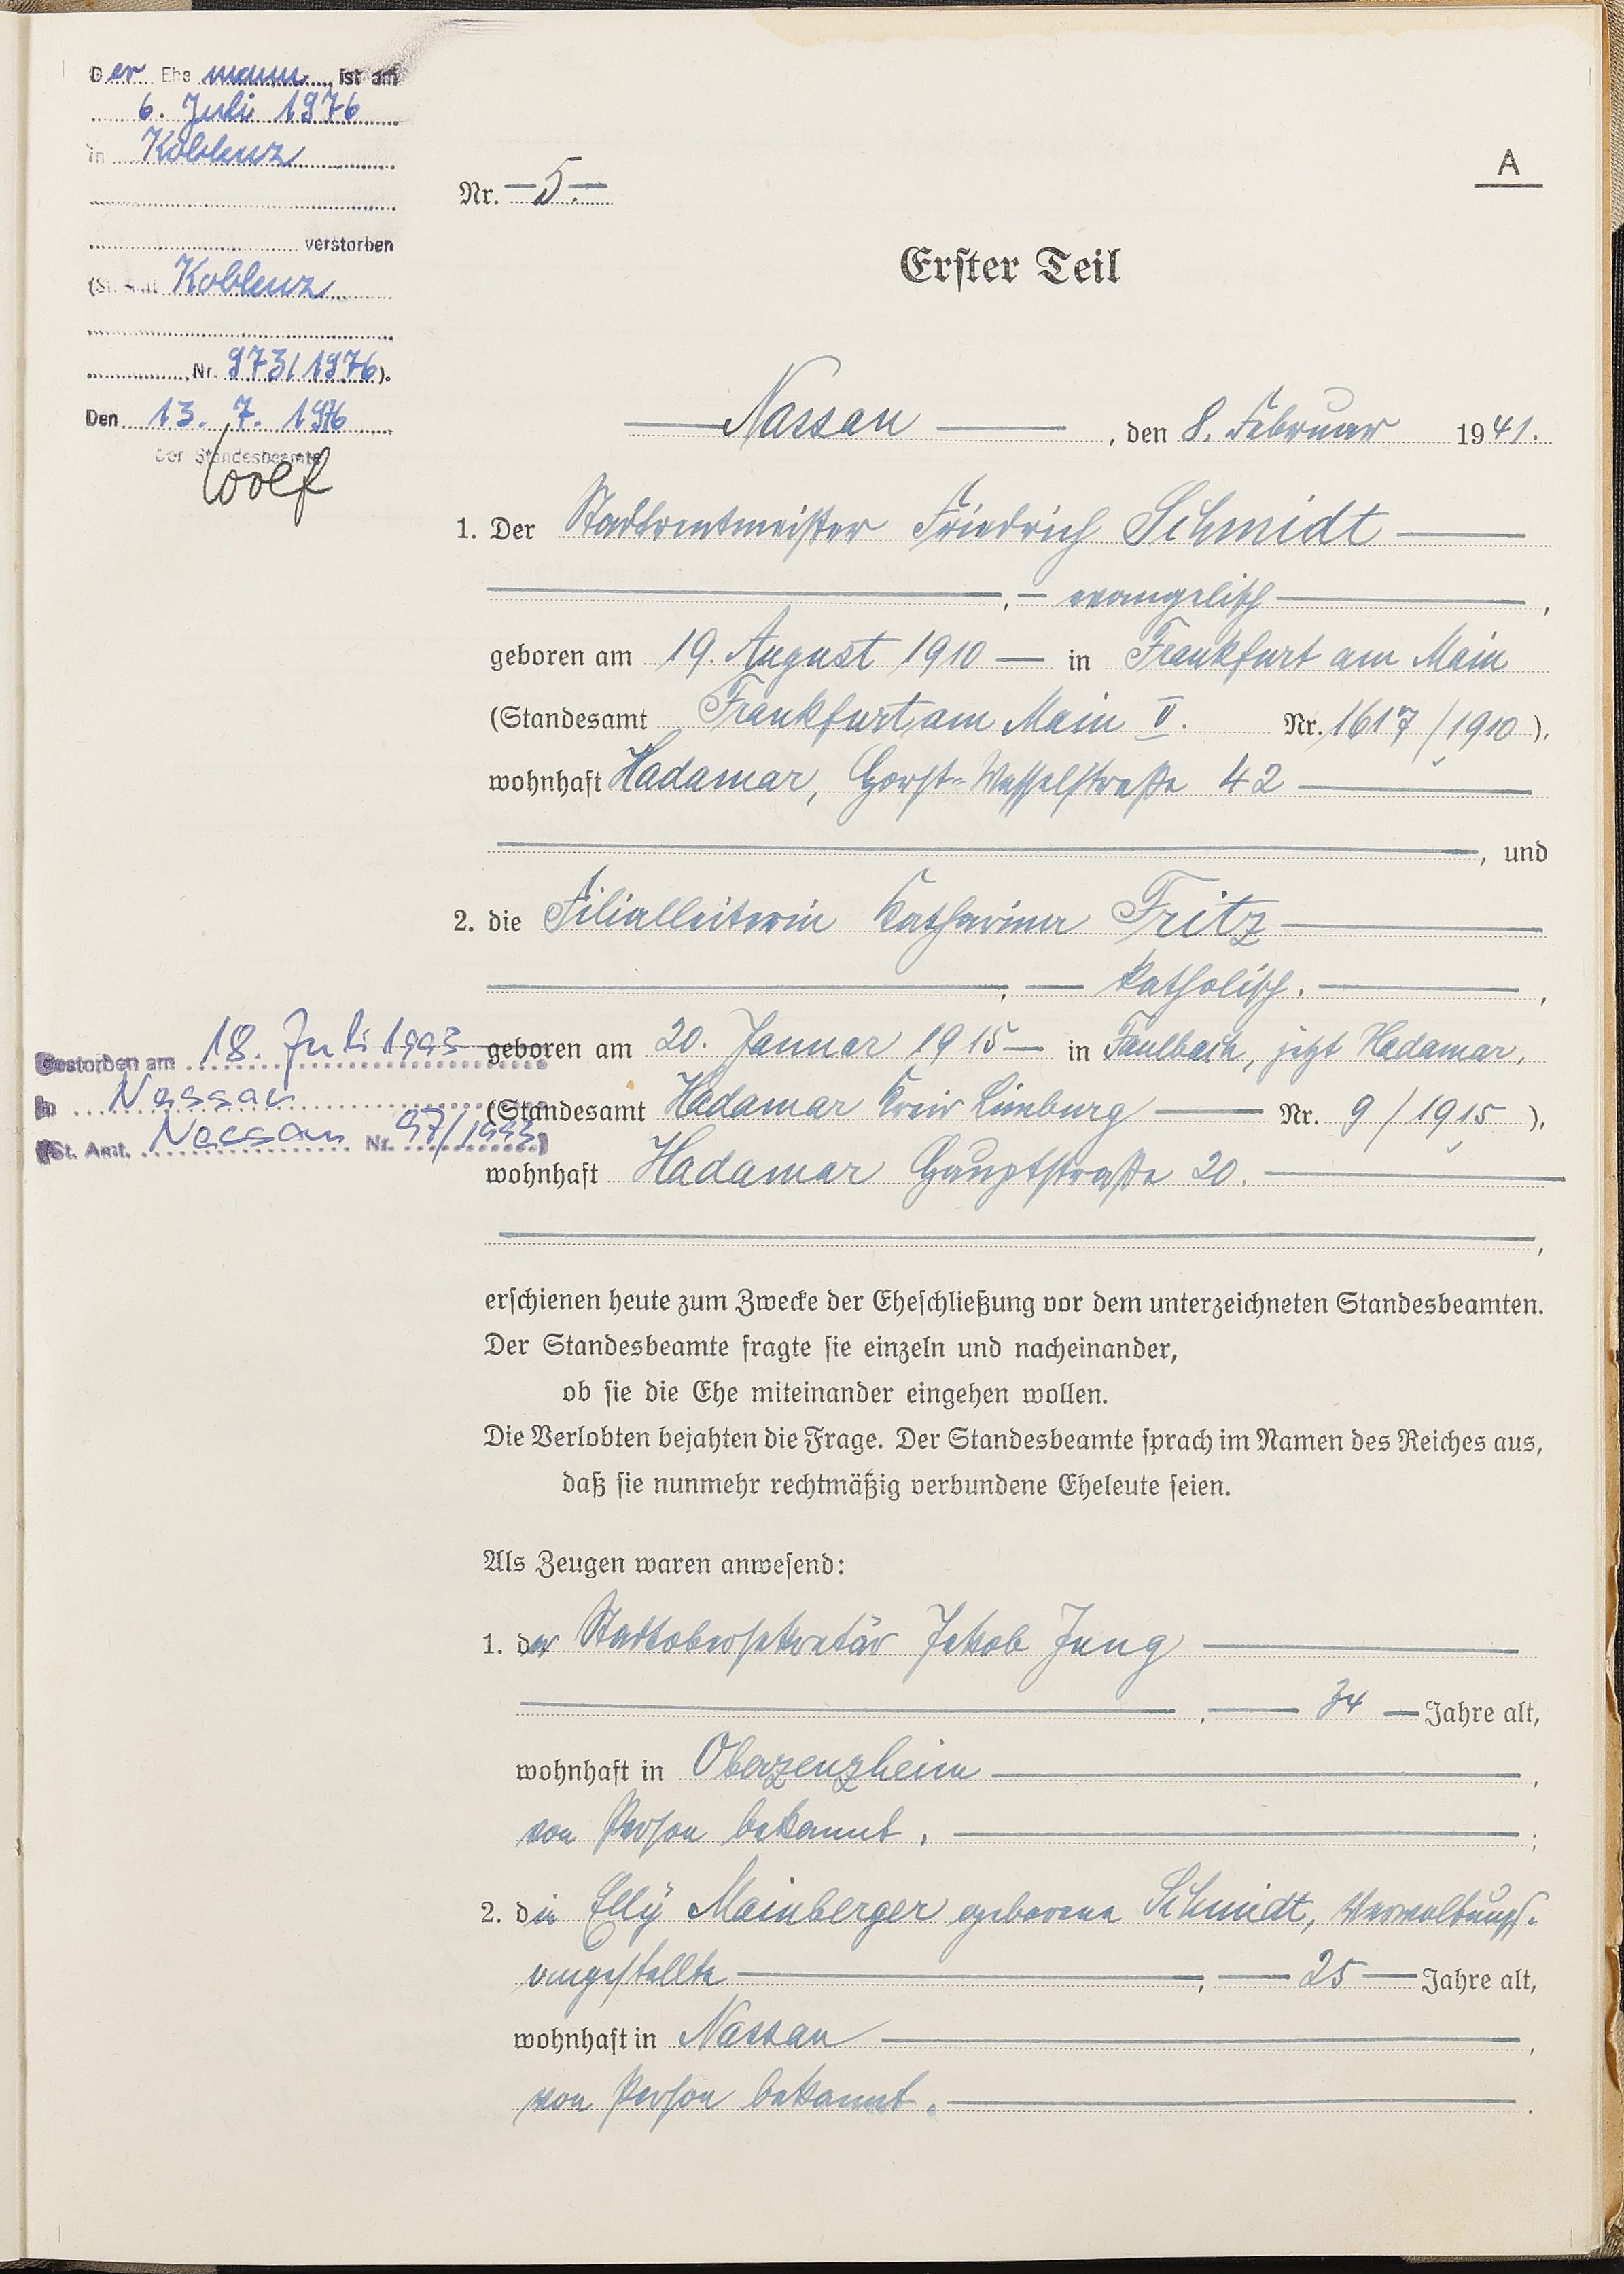 Der Ehemann ist am
6. Juli 1976
in Koblenz
verstorben
(St. Amt Koblenz
Nr. 973/1976).
Den 13. 7. 1976
Der Standesbeamte
Wolf
A
Nr. 5.
Erster Teil
Nassau, den 8. Februar 1941.
1. Der Stadtrentmeister Friedrich Schmidt
, evangelisch,
geboren am 19. August 1910 in Frankfurt am Main
(Standesamt Frankfurt am Main V. Nr. 1617/1910),
wohnhaft Hadamar, Horst-Wesselstraße 42
, und
2. die Filialleiterin Katharina Fritz
, katholisch.,
geboren am 20. Januar 1915 in Faulbach, jetzt Hadamar,
(Standesamt Hadamar Kreis Limburg Nr. 9/1915),
wohnhaft Hadamar Hauptstraße 20.
,
Gestorben am 18. Juli 1993
in Nassau
(St. Amt. Nassau Nr. 97/1993)
erschienen heute zum Zwecke der Eheschließung vor dem unterzeichneten Standesbeamten.
Der Standesbeamte fragte sie einzeln und nacheinander,
ob sie die Ehe miteinander eingehen wollen.
Die Verlobten bejahten die Frage. Der Standesbeamte sprach im Namen des Reiches aus,
daß sie nunmehr rechtmäßig verbundene Eheleute seien.
Als Zeugen waren anwesend:
1. der Stadtobersekretär Jakob Jung
, 34 Jahre alt,
wohnhaft in Oberzeuzheim,
von Person bekannt,;
2. die Elly Mainberger geborene Schmidt, Verwaltungs-
angestellte, 25 Jahre alt,
wohnhaft in Nassau,
von Person bekannt.